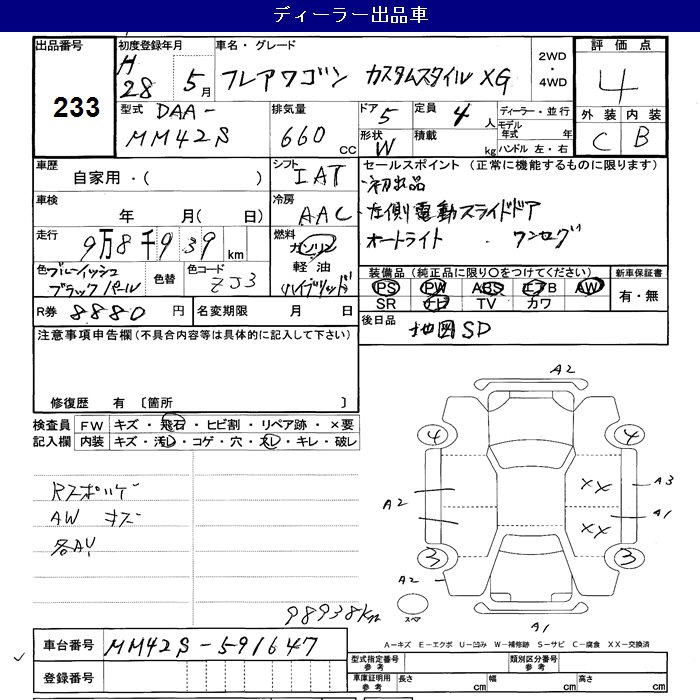 ディーラー出品車
出品番号
233
初度登録年月
H
28 5月
車名・グレード
フレアワゴン カスタムスタイル XG
2WD
・
4WD
評価点
4
外装 内装
C B
型式 DAA-
MM42S
排気量
660 CC
ドア 5
定員 4人
形状 W
積載 kg
ディーラー・並行
モデル年式 年
ハンドル 左・右
車歴
自家用・( )
シフト IAT
車検
年 月( 日)
冷房 AAC
走行
9万8千9 39 km
燃料
ガソリン
軽油
ハイブリッド
色 ブルーイッシュ
ブラックパール
色替
色コード
ZJ3
R券 8880 円
名変期限 月 日
セールスポイント (正常に機能するものに限ります)
・初出品
・左側電動スライドドア
オートライト ・ワンセグ
装備品(純正品に限り○をつけてください)
PS PW ABS エアB AW
SR ナビ TV カワ
新車保証書
有・無
後日品 地図SD
注意事項申告欄(不具合内容等は具体的に記入して下さい)
修復歴 有 〔箇所 〕
検査員 FW キズ・飛石・ヒビ割・リペア跡・×要
記入欄 内装 キズ・汚レ・コゲ・穴・スレ・キレ・破レ
AW キズ
各A1
98938km
A2
4 4
A2
XX
XX
A3
A1
3 3
A2
スペア
A1
A-キズ E-エクボ U-凹み W-補修跡 S-サビ C-腐食 XX-交換済
車台番号 MM42S-591647
登録番号
型式指定番号
参考
類別区分番号
参考
車庫証明用
参考
長さ cm 幅 cm 高さ cm